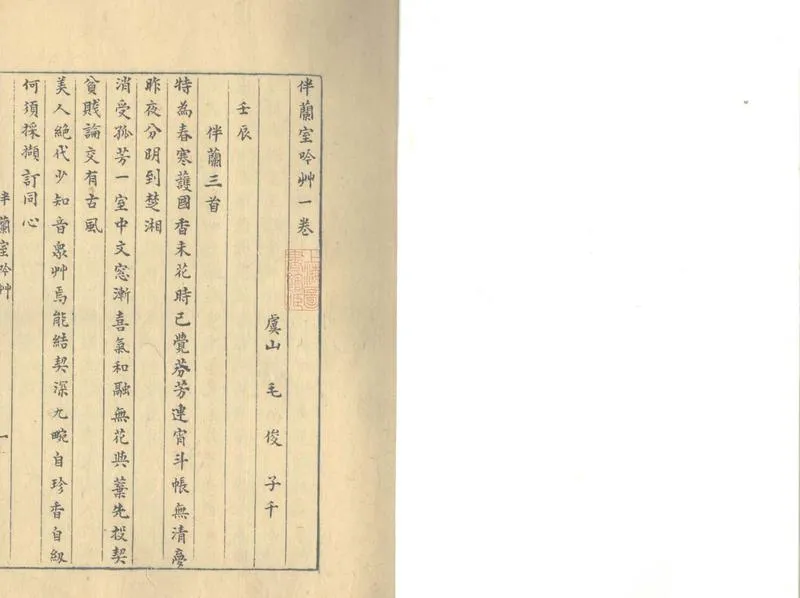 伴蘭室吟艸一卷
上海圖書館藏
虞山 毛 俊 子千
壬辰
伴蘭三首
特為春寒護國香未花時已覺芬芳連宵斗帳無清夢
昨夜分明到楚湘
消受孤芳一室中文窓漸喜氣和融無花與葉先投契
貧賤論交有古風
美人絕代少知音衆艸焉能結契深九畹自珍香自紉
何須採擷訂同心
伴蘭室吟艸
一